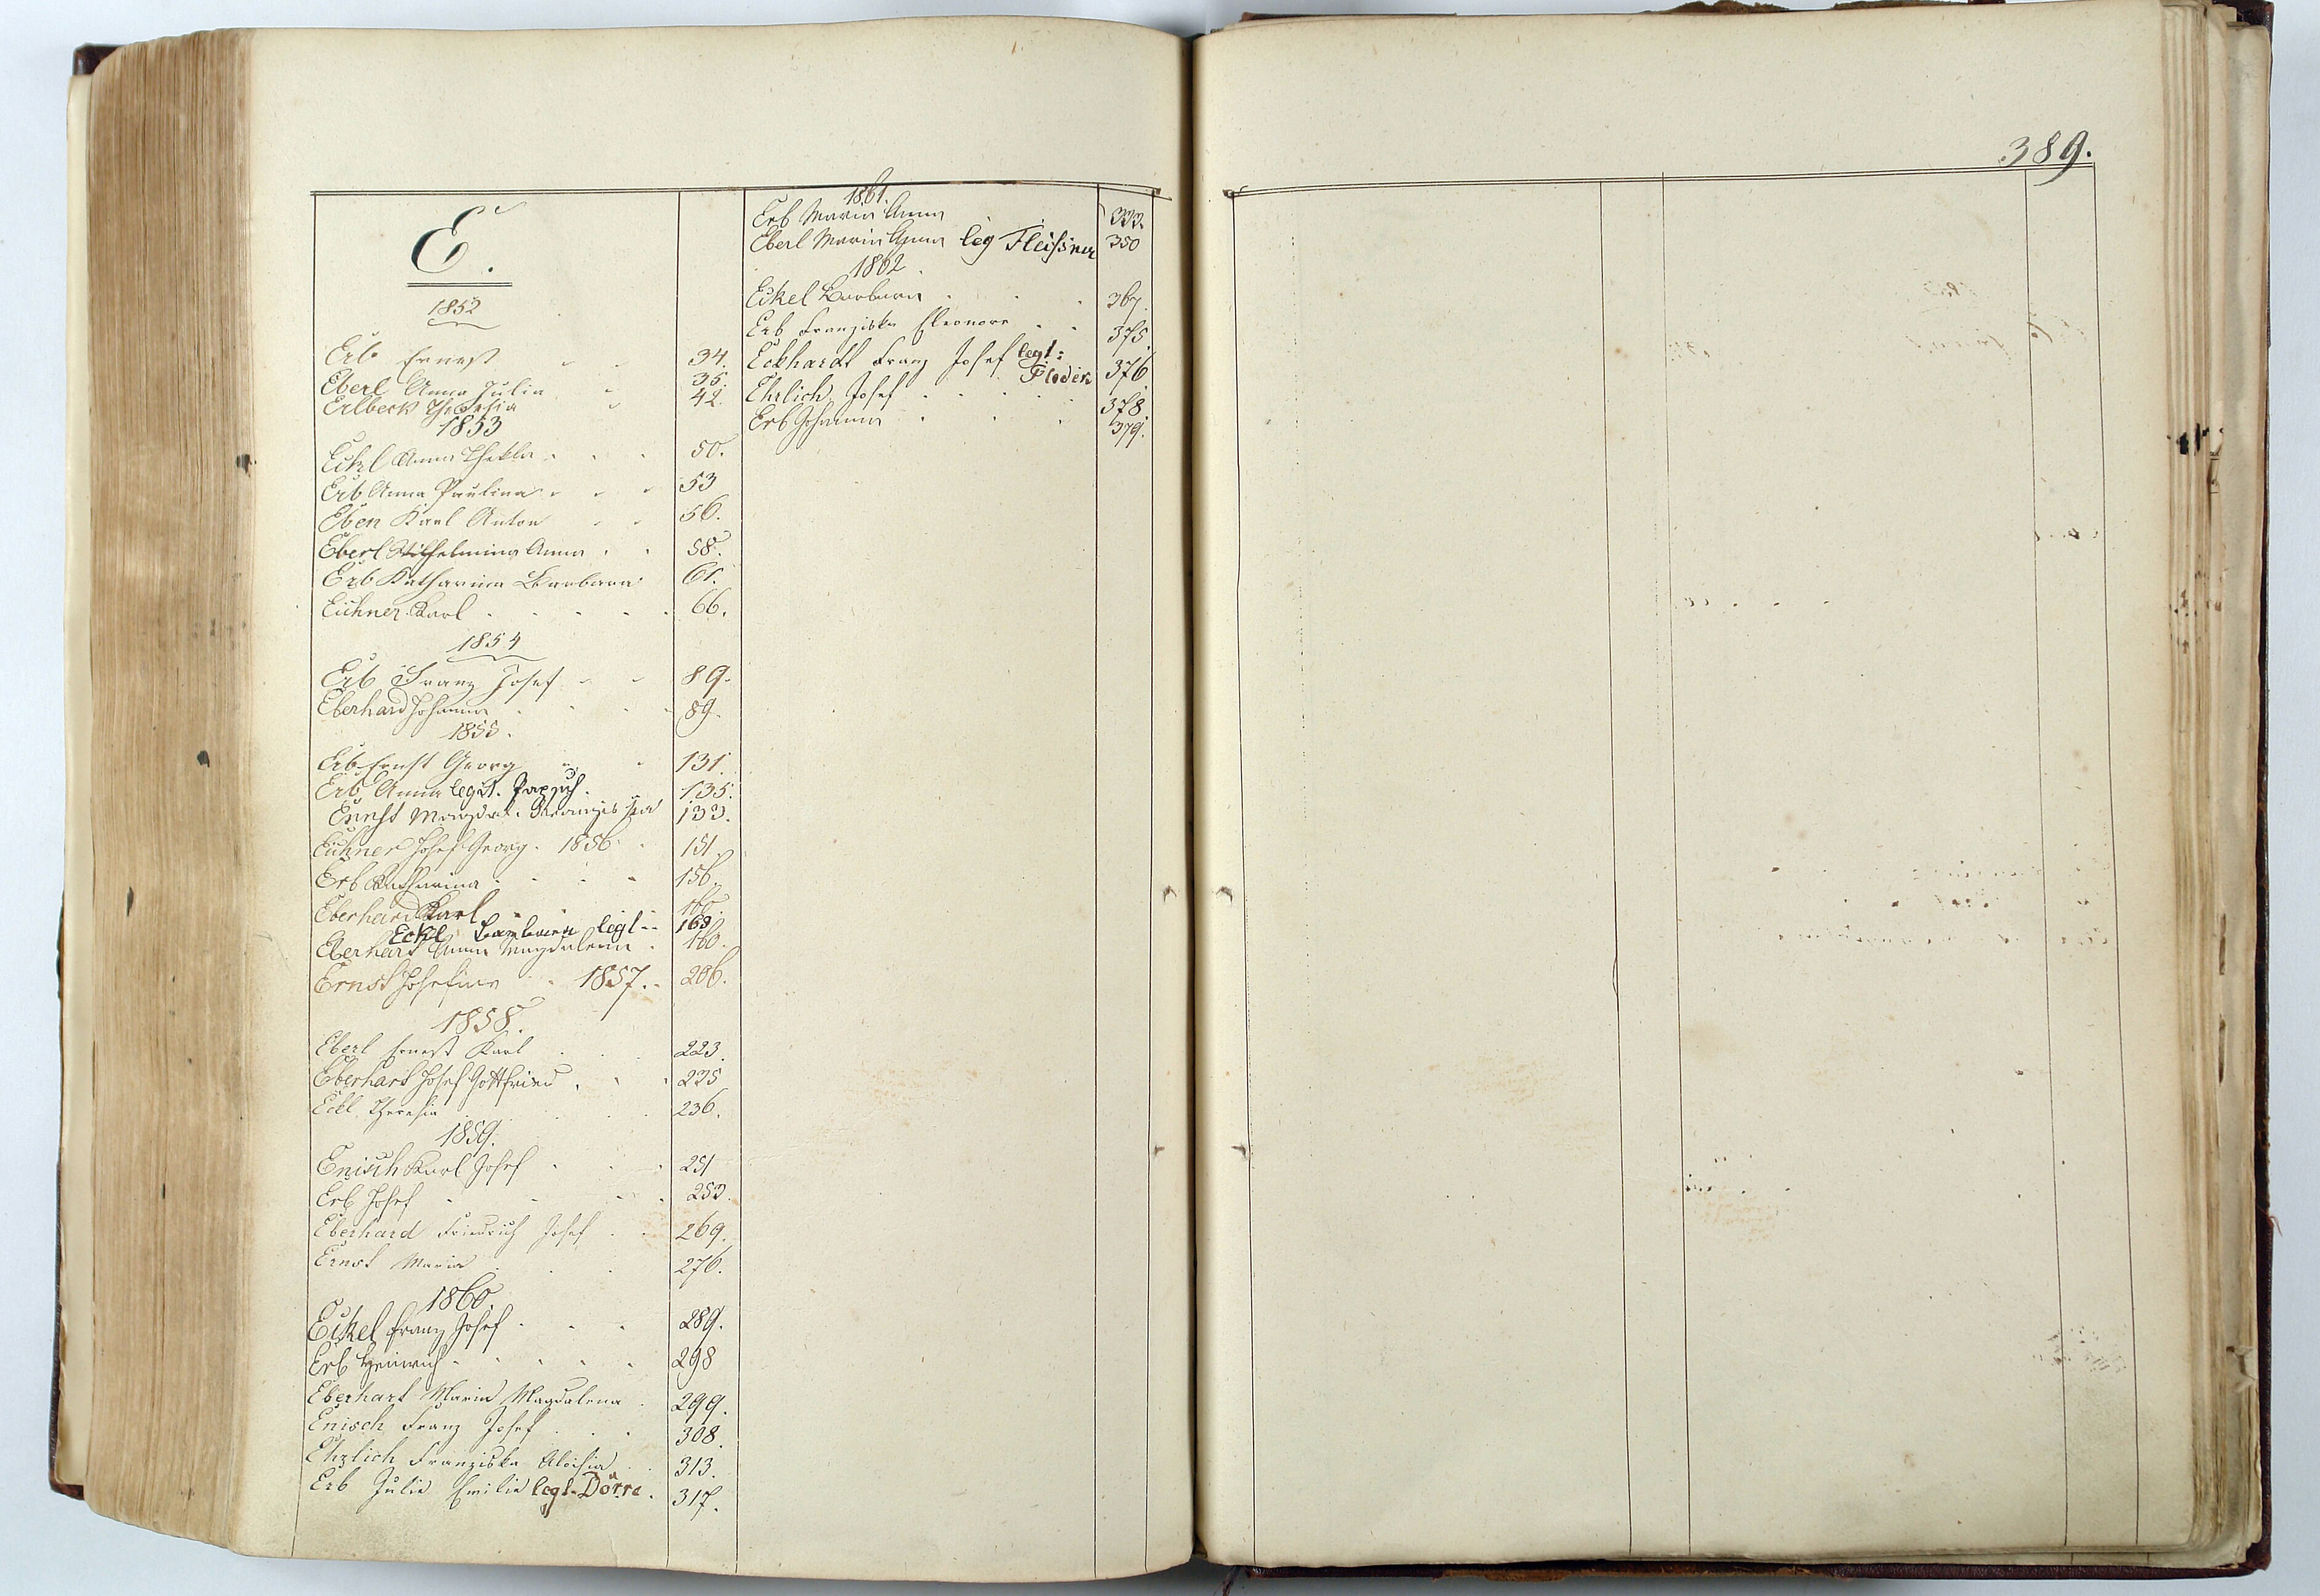 E.
1852
Erb Ernest 34.
Eberl Anna Julia 35.
Erlbeck Theresia 42.
1853
Eckl Anna Thekla 50.
Erb Anna Paulina 53
Eben Karl Anton 56.
Eberl Wilhelmina Anna 58.
Erb Katharina Barbara 61.
Eichner Karl 66.
1854
Erb Franz Josef 89.
Eberhard Johanna 89.
1855.
Erb Ernst Georg 131.
Erb Anna legit. 135.
Ernst Magdal. Franziska 133.
Eichner Josef Georg. 1856. 151.
Erb Katharina 156.
Eberhard Karl
Eckl Barbara legl. 168.
Eberhart Anna Magdalena 160.
Ernst Josefine 1857. 206.
1858.
Eberl Ernest Karl 223.
Eberhart Josef Gottfried 235
Eckl Theresia 236.
1859.
Enisch Karl Josef 251
Erb Josef 253.
Eberhard Friedrich Josef 269.
Ernst Maria 276.
1860
Eikel Franz Josef 289.
Erb Heinrich 298
Eberhart Maria Magdalena 299.
Enisch Franz Josef 308.
Ehrlich Franziska Aloisia 313.
Erb Julie Emilie legl. Dörre. 317.
1861.
Erb Maria Anna 333.
Eberl Maria Anna leg Fleißner 350
1862
Eikel Barbara 367.
Erb Franziska Eleonore 375.
Eckhardt Franz Josef legl: 376.
Floder
Ehrlich Josef 378.
Erb Johanna 379.
389.